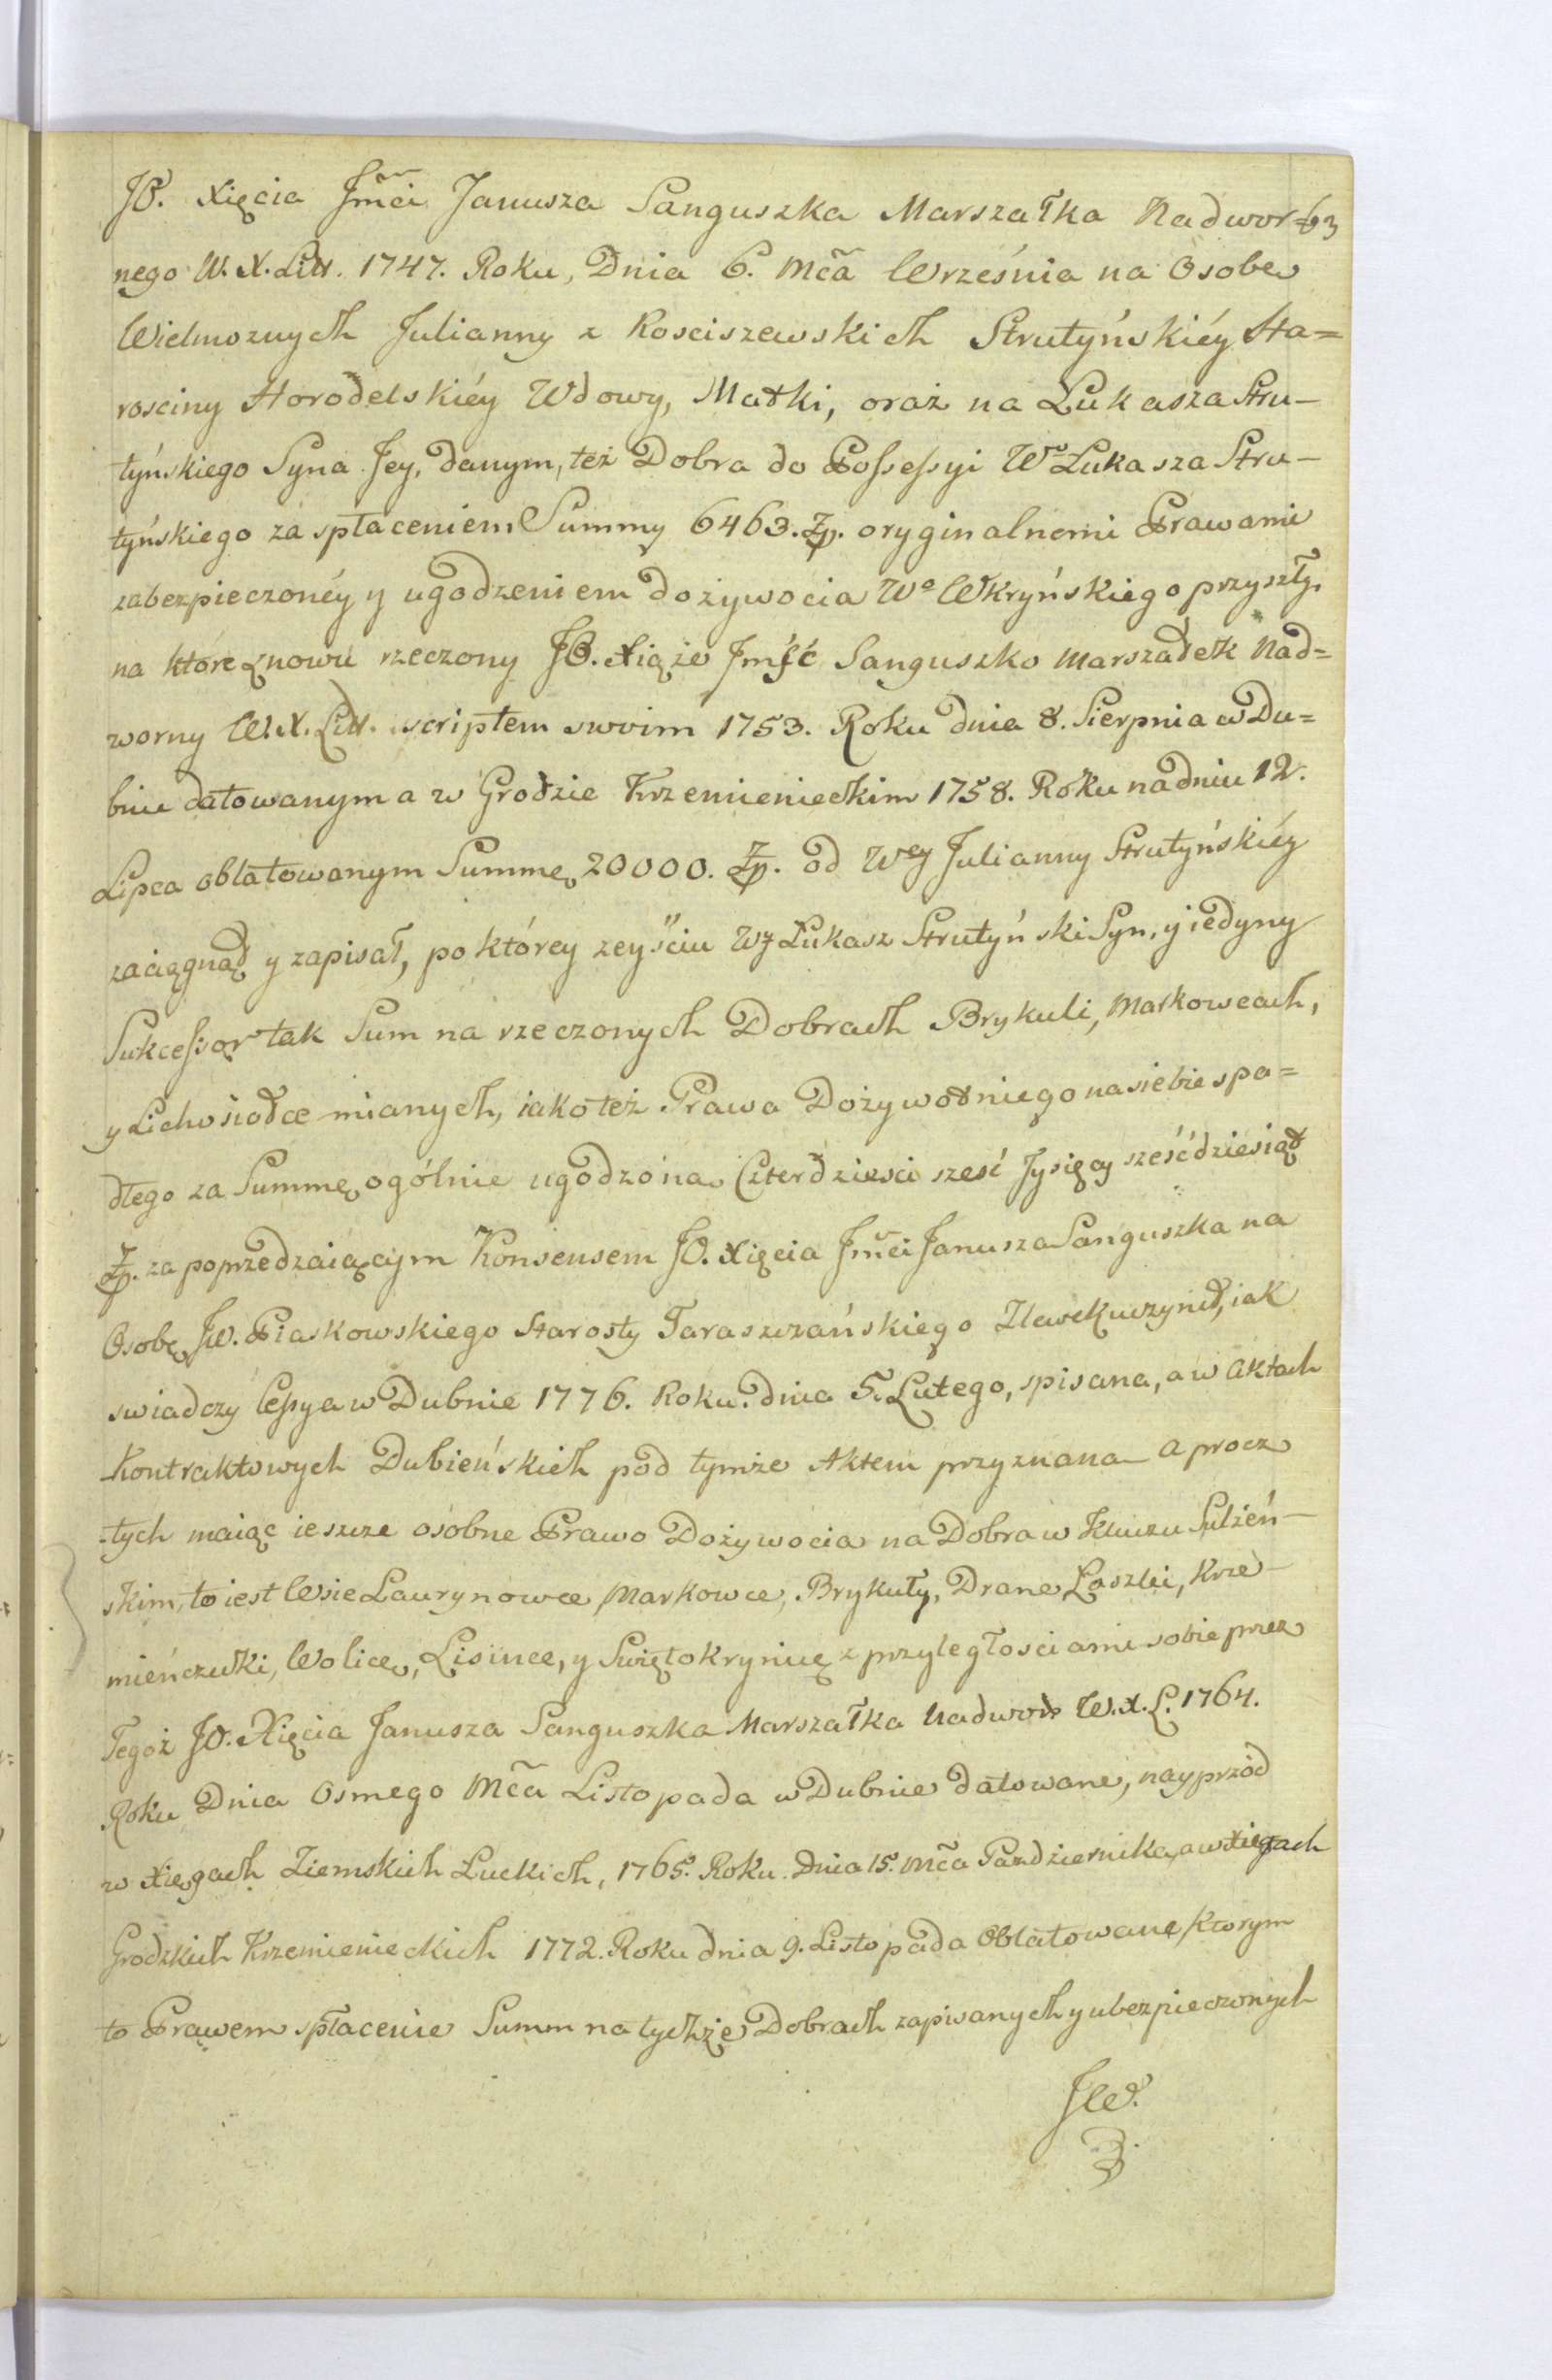 JO. Xięcia Jmći Janusza Sanguszka Marszałka Nadwor= 63
nego W. X. Litt. 1747. Roku, Dnia 6. Mca Września na Osobę
Wielmoznych Julianny z Rosciszewskich Strutyńskiéy Sta=
rosciny Horodelskiéy Wdowy, Matki, oraz na Łukasza Stru-
tyńskiego Syna Jey, danym, też Dobra do Possessyi Wo Łukasza Stru-
tyńskiego za spłaceniem Summy 6463. Zp. oryginalnemi Prawami
zabezpieczonéy y ugodzeniem dożywocia Wo Wkryńskiego przyszły,
na które znowu rzeczony JO. Xiąże Jmść Sanguszko Marszałek Nad=
worny W. X. Litt. scriptem swoim 1753. Roku dnia 8. Sierpnia w Du=
bnie datowanym a w Grodzie Krzemienieckim 1758. Roku na dniu 12.
Lipca oblatowanym Summę 20000. Zp. od Wey Julianny Strutyńskiéy
zaciągnął y zapisał, po którey zeyściu WJ Łukasz Strutyński Syn, y iedyny
Sukcessor tak Sum na rzeczonych Dobrach Brykuli, Markowcach,
y Lichosiołce mianych, iako też Prawa Dożywotniego na siebie spa=
dłego za Summę ogólnie ugodzoną Czterdziesci szesć Tysięcy sześćdziesiąt
Zp. za poprzedzaiącym Konsensem JO. Xięcia Jmci Janusza Sanguszka na
Osobę JW. Piaskowskiego Starosty Taraszczańskiego Zlewek uczynił, iak
swiadczy Cessya w Dubnie 1776. Roku. dnia 5. Lutego, spisana, a w Aktach
Kontraktowych Dubieńskich pod tymże Aktem przyznana a procz
tych maiąc ieszcze osobne Prawo Dożywocia na Dobra w Kluczu Sulżeń-
skim, to iest Wsie Laurynowce, Markowce, Brykuły, Drane Laszki, Krze-
mieńczuki, Wolicę, Lisince, y Swiętokrynię z przyległosciami sobie przez
Tegoż JO. Xięcia Janusza Sanguszka Marszałka Nadwor W. X. L. 1764.
Roku Dnia Osmego Mca Listopada w Dubnie datowane, nayprzód
w Xięgach Ziemskich Luckich, 1765. Roku. Dnia 15. Mca Pazdziernika, a w Xięgach
Grodzkich Krzemienieckich 1772. Roku dnia 9. Listopada Oblatowane, ktorym
to Prawem spłacenie Summ na tychże Dobrach zapisanych y ubezpieczonych
JW.